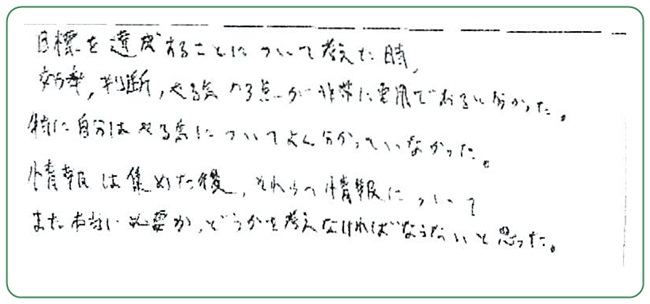 目標を達成することについて考えた時、
効率，判断，やる気の3点が非常に重要であると分かった。
特に自分はやる気についてよく分かっていなかった。
情報は集めた後，それらの情報について
また本当に必要か，どうかを考えなければならないと思った。